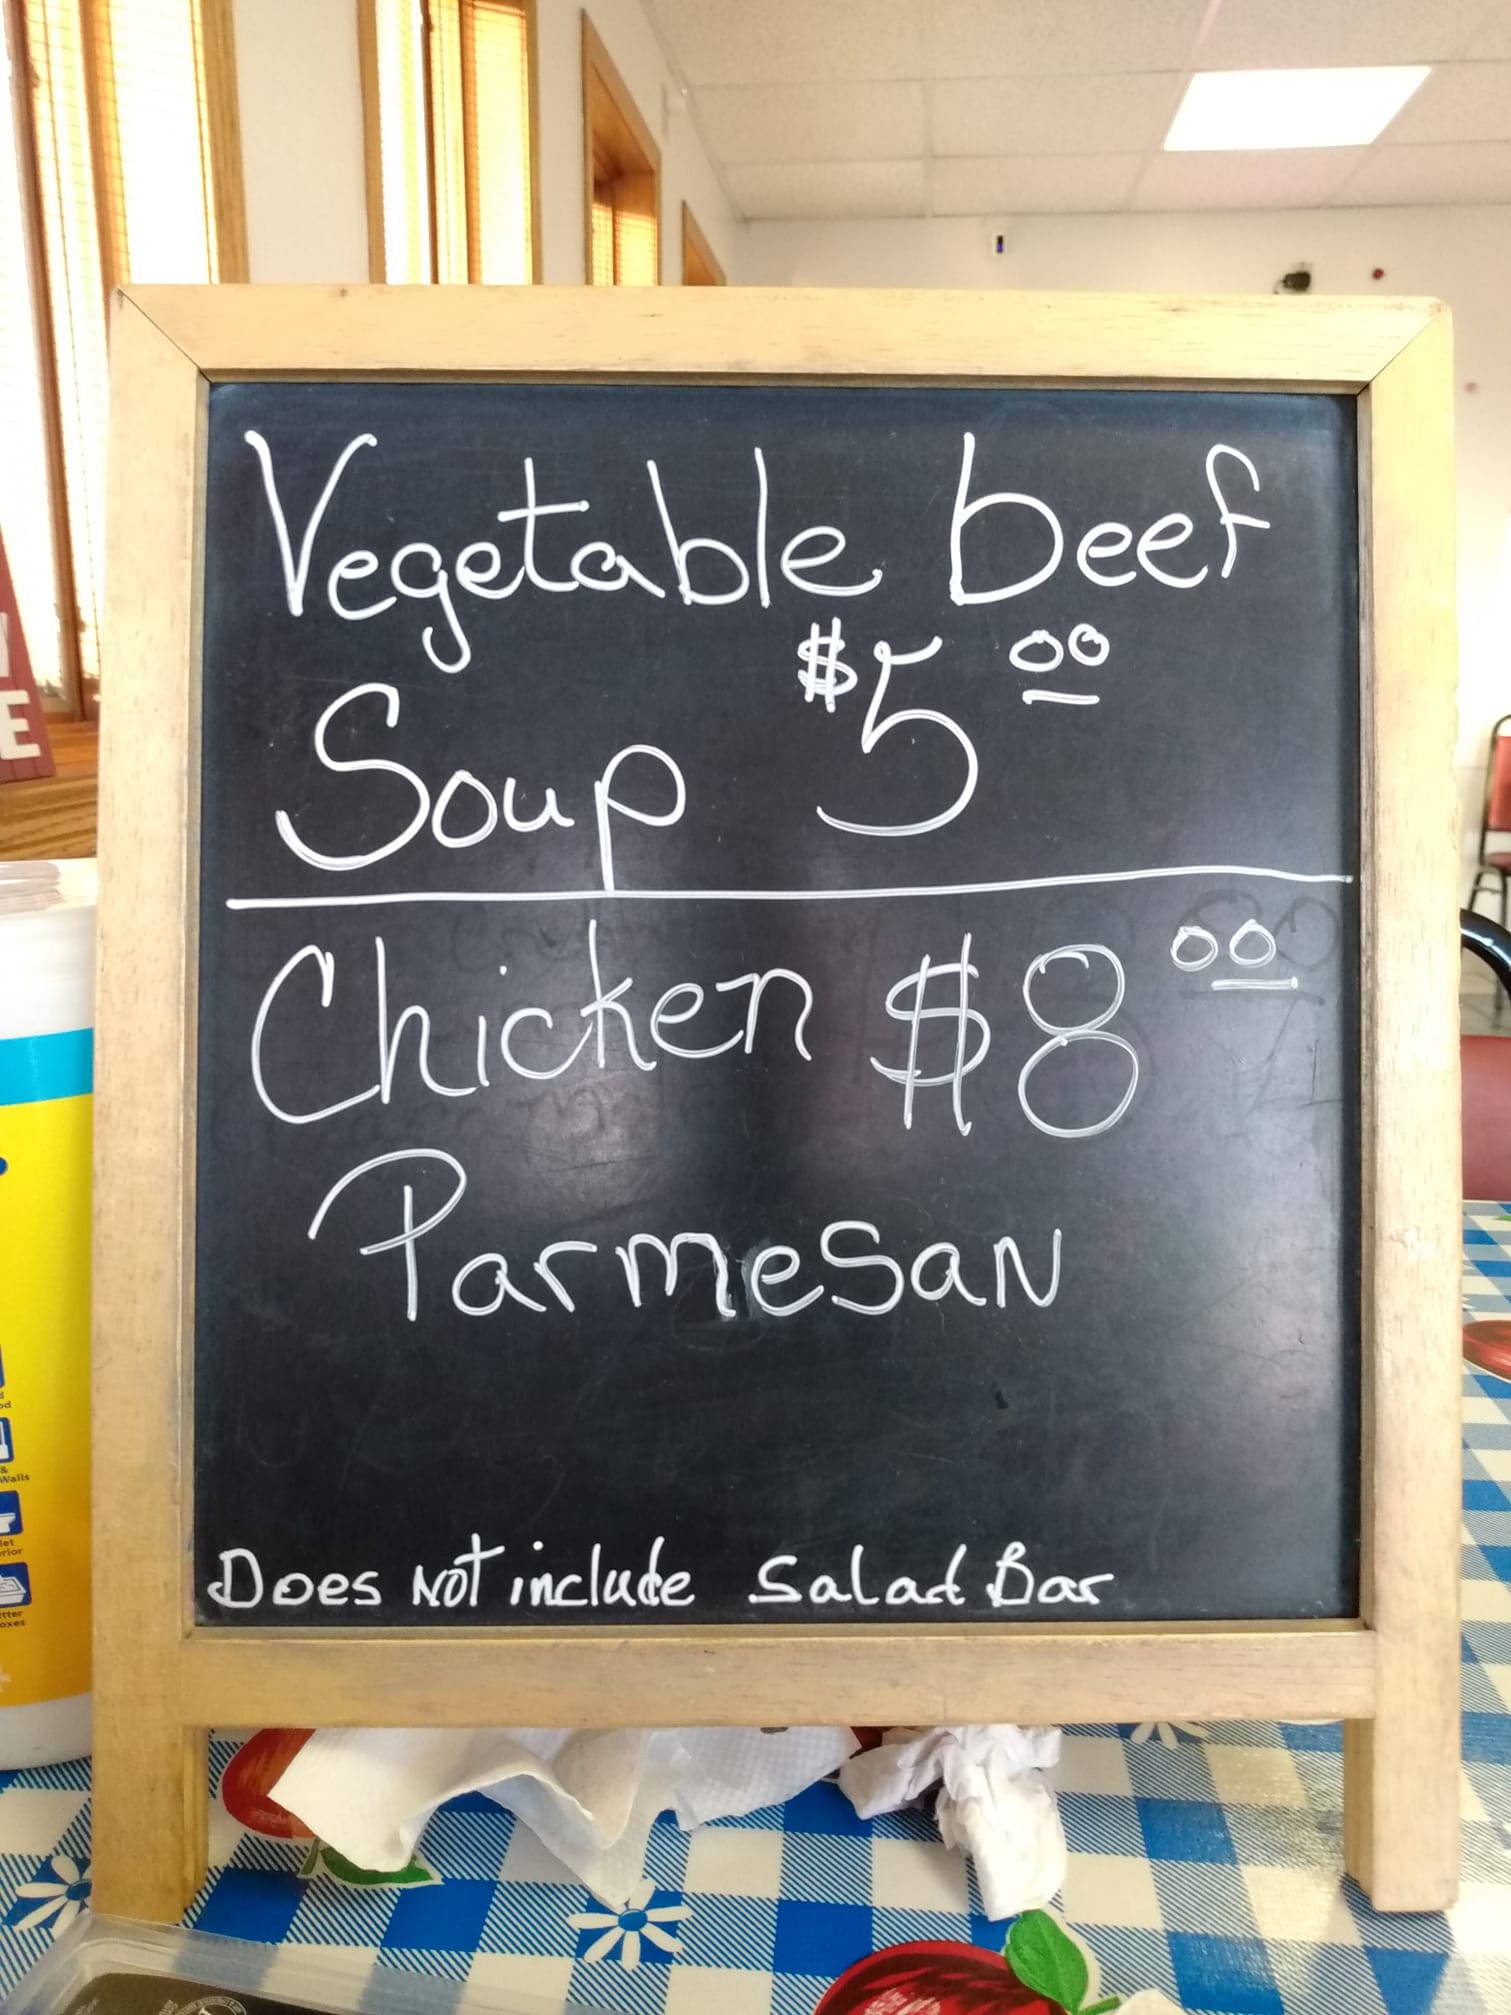 Vegetable beef
Soup $5 00
Chicken $8 00
Parmesan
Does Not include Salad Bar
E
&
Walls